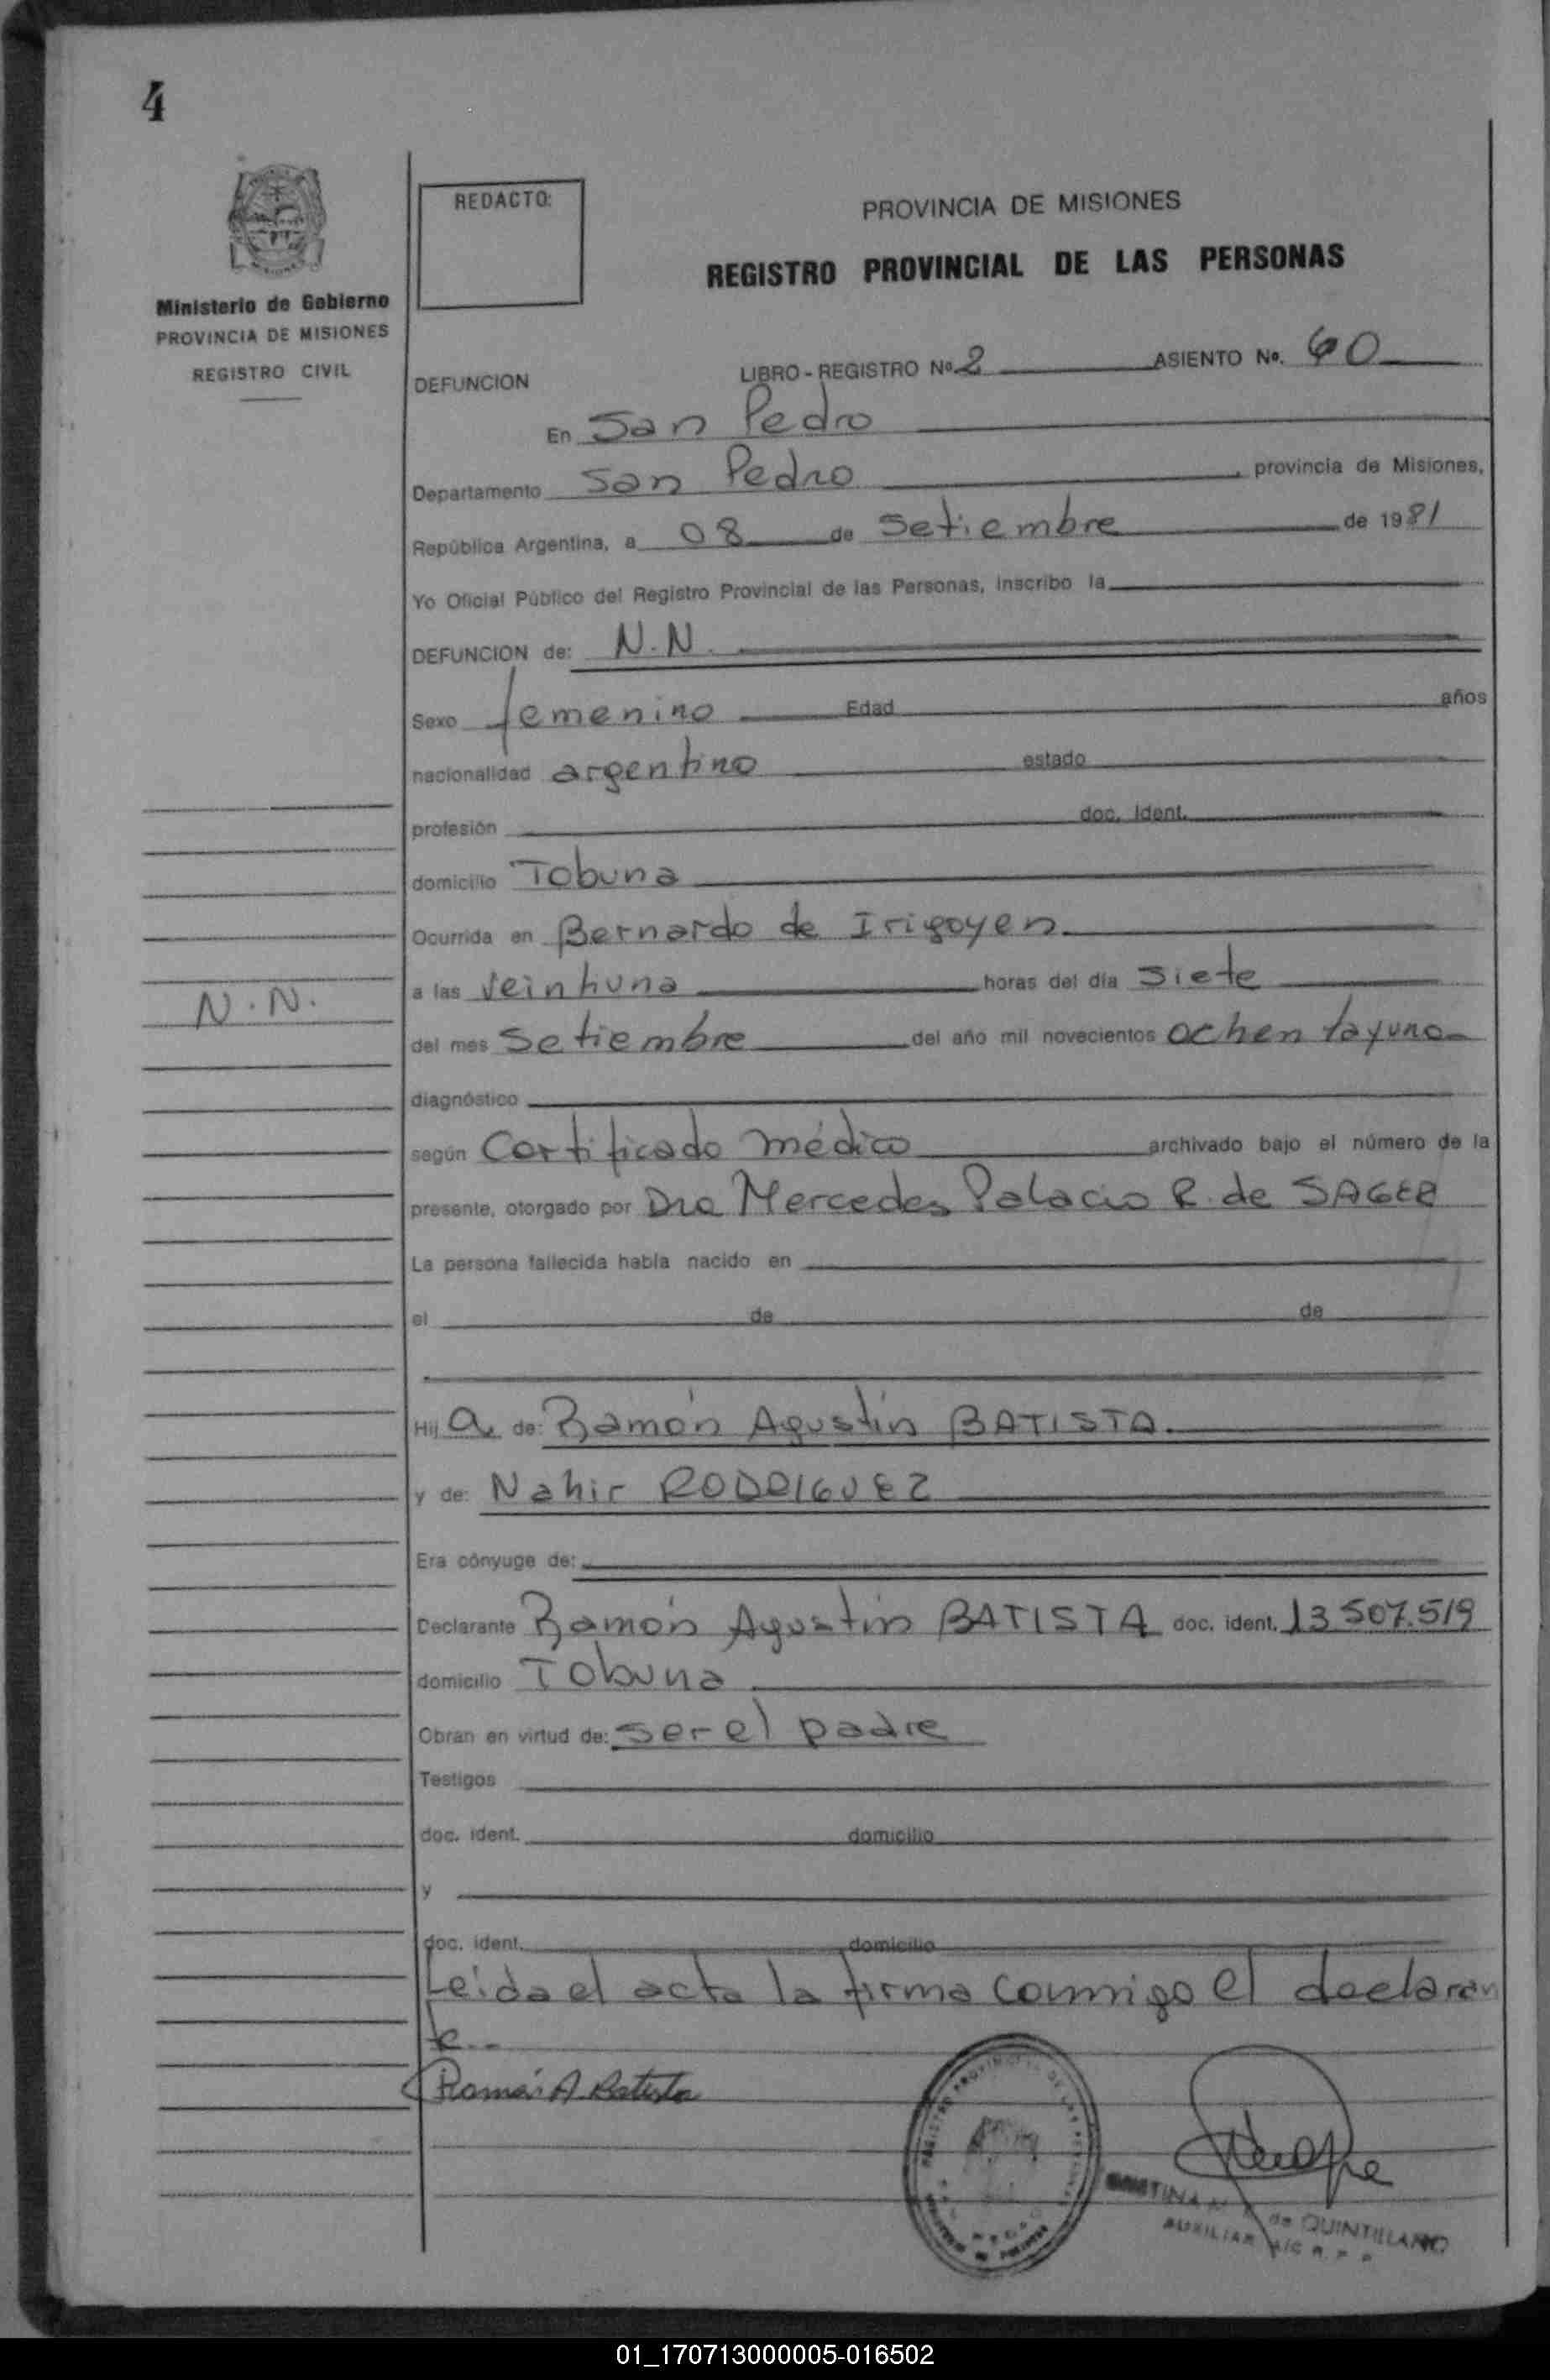 4
Ministerio de Gobierno
PROVINCIA DE MISIONES
REGISTRO CIVIL
REDACTO:
PROVINCIA DE MISIONES
REGISTRO PROVINCIAL DE LAS PERSONAS
DEFUNCION LIBRO - REGISTRO Nº 2 ASIENTO Nº. 60
En San Pedro
Departamento San Pedro, provincia de Misiones,
República Argentina, a 08 de Setiembre de 1981
Yo Oficial Público del Registro Provincial de las Personas, inscribo la
DEFUNCION de: N.N.
Sexo femenino Edad años
nacionalidad argentino estado
profesión doc. ident.
domicilio Tobuna
Ocurrida en Bernardo de Irigoyen
a las veintiuna horas del día siete
N.N.
del mes Setiembre del año mil novecientos ochentayuno
diagnóstico
según Certificado médico archivado bajo el número de la
presente, otorgado por Dra Mercedes Palacio R. de SAGER
La persona fallecida había nacido en
el de de
Hij a de: Ramón Agustín BATISTA.
y de: Nahir RODRIGUEZ
Era cónyuge de:
Declarante Ramón Agustín BATISTA doc. ident. 13 507.519
domicilio Tobuna
Obran en virtud de: ser el padre
Testigos
doc. ident. domicilio
y
doc. ident. domicilio
Leída el acta la firma conmigo el declaran
te.-
Ramón A Batista
de QUINTILLANO
AUXILIAR
01_170713000005-016502